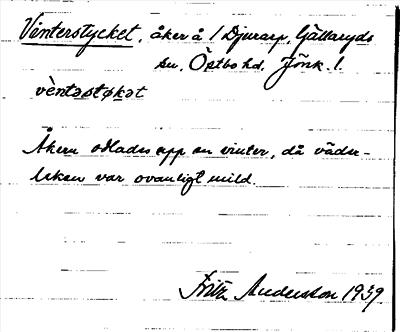 Vinterstycket, åker å / Djurarp, Gällaryds
sn, Östbo hd, Jönk. l.
vèntəstøkət
Åkern odlades upp en vinter, då väder-
leken var ovanligt mild.
Fritz Anderston 1939